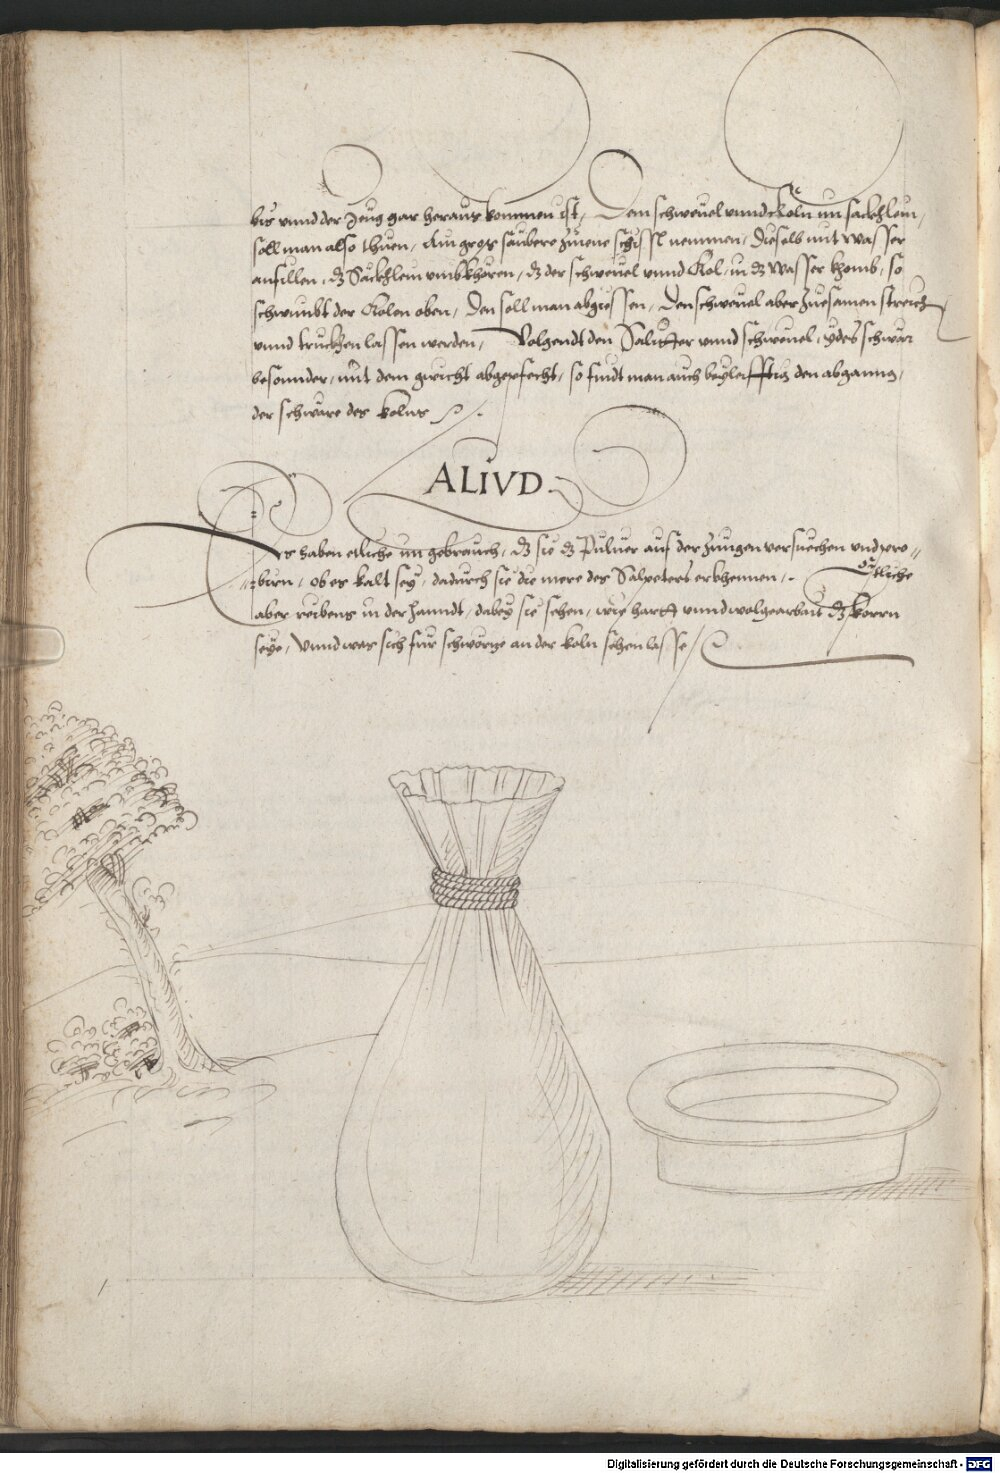 bis vnnd der Zeug gar heraus kommen ist, Den schwevel vnnd Koln im säckhlein,
soll man also thuen, Ain gross saubere Zinene schissl nemmen, dieselb mit wasser
anfillen, dz Säckhlein vmbkhören, dz der schwevel vnnd Kol, in dz wasser khomb, so
schwimbt der Kolen oben, den soll man abgiessen, den schwevel aber Zuesamen streich
vnnd truckhen lassen werden, Volgendt den Saliter vnnd schwevel, ydes schwär
besonnder, mit dem gwicht abgepfecht, so findt man auch beyleifftig den abganng,
der schwäre des kolns
ALIVD.
Es haben etliche im gebrauch, dz sie dz Puluer auf der Zungen versuechen vnd pro=
biern, ob es kalt sey, dadurch sie die mere des Salpeters erkhennen, Etliche
aber reibens in der hanndt, dabey sie sehen, wie hartt vnnd wolgearbait dz korrn
seye, Vnnd was sich für schwörze an der koln sehen lasse
Digitalisierung gefördert durch die Deutsche Forschungsgemeinschaft - DFG